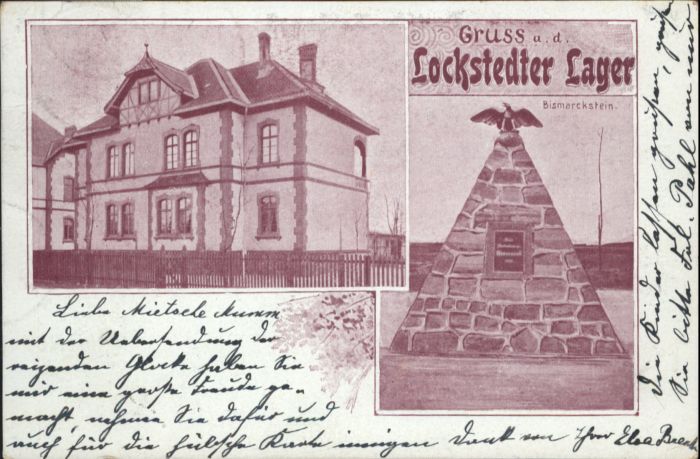 Gruss a. d.
Lockstedter Lager
Bismarckstein.
Liebe Mietsche Mumm
mit der Uebersendung der
reizenden Glocke haben Sie
mir eine große Freude ge-
macht, nehmen Sie dafür und
auch für die hübsche Karte innigen Dank von Ihrer Elsa
Die Kinder lassen grüßen,
Sie